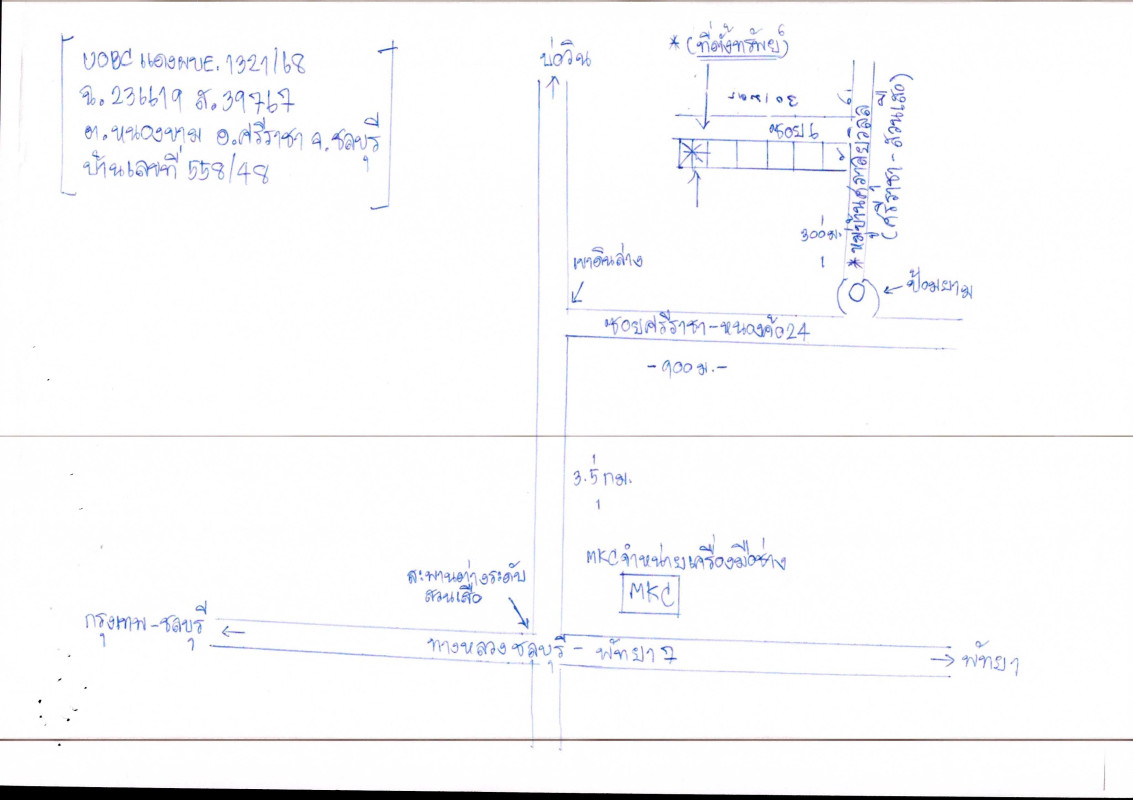 UOBC แดงผบE. 1321/68
ฉ. 236619 ส. 39767
ต.หนองขาม อ.ศรีราชา จ.ชลบุรี
บ้านเลขที่ 558/48
บ่อวิน
* (ที่ตั้งทรัพย์)
30 เมตร
ซอย 9
6
*หมู่บ้านศุภาลัยวิลล์
(ศรีราชา - สวนเสือ)
300 ม.
ป้อมยาม
เขาดินล่าง
ซอยศรีราชา-หนองค้อ24
- 900 ม. -
3.5 กม.
MKC จำหน่ายเครื่องมือช่าง
MKC
สะพานต่างระดับ
สวนเสือ
กรุงเทพ-ชลบุรี
ทางหลวงชลบุรี - พัทยา 7
พัทยา